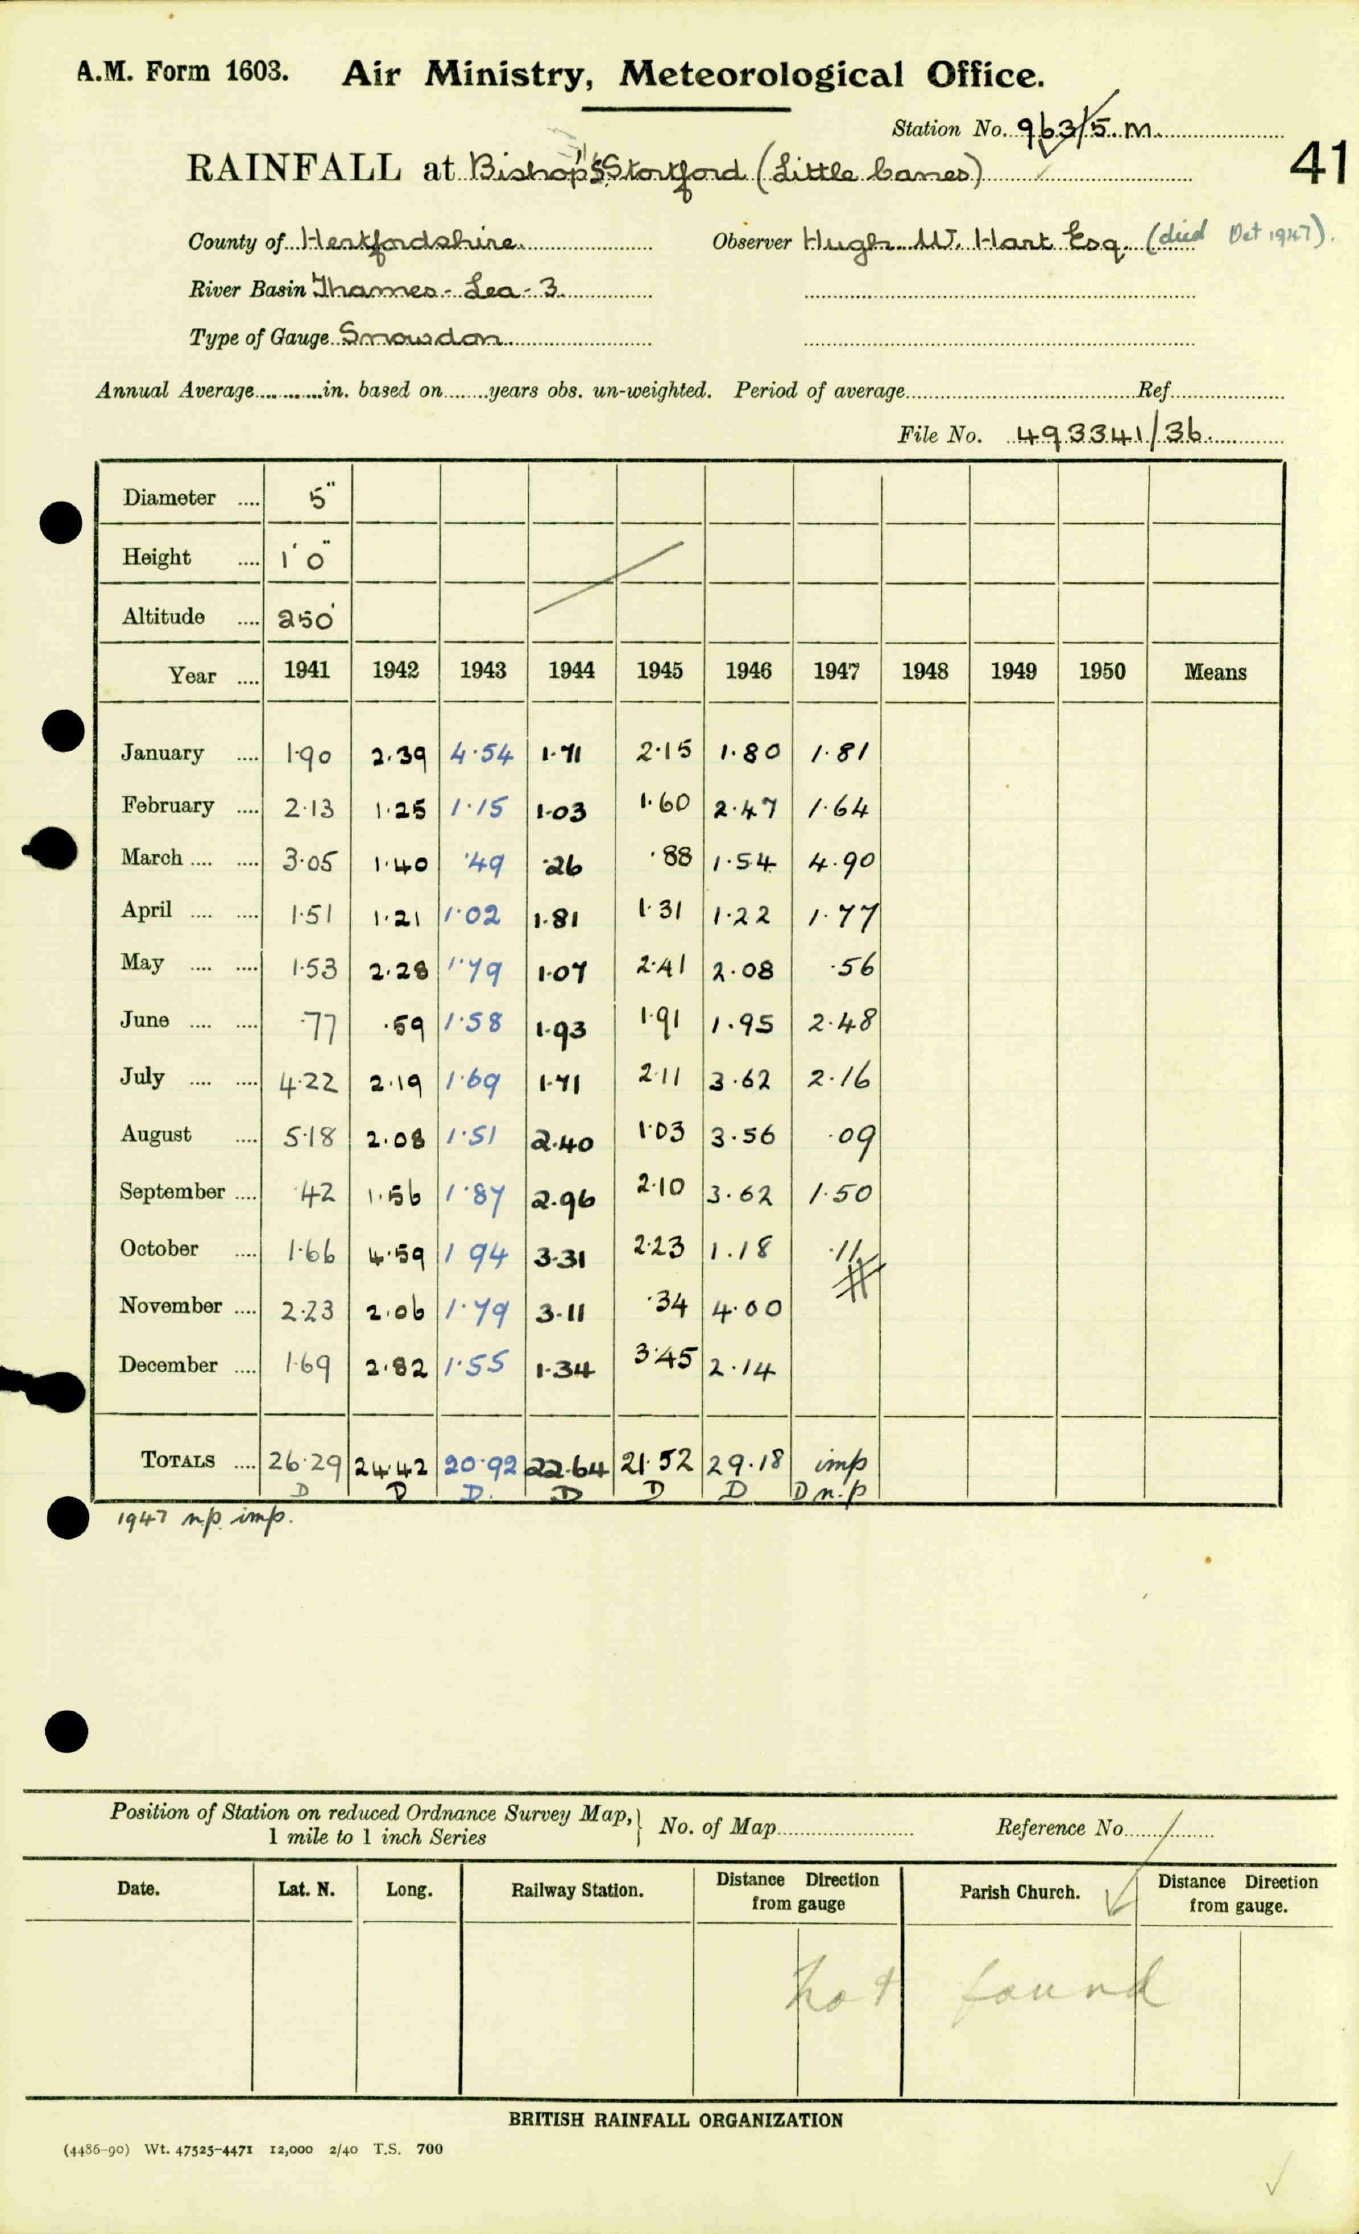 A.M. Form 1603. Air Ministry, Meteorological Office.
Station No. 963/5.M.
41
RAINFALL at Bishop's Stortford (Little Canes)
County of Hertfordshire. Observer Hugh W. Hart Esq. (died Oct 1947).
River Basin Thames - Lea - 3
Type of Gauge Snowdon
Annual Average............in. based on........years obs. un-weighted. Period of average............Ref............
File No. 493341/36
Diameter .... 5"
Height .... 1' 0"
Altitude .... 250'
Year .... 1941 1942 1943 1944 1945 1946 1947 1948 1949 1950 Means
January .... 1·90 2·39 4·54 1·71 2·15 1·80 1·81
February .... 2·13 1·25 1·15 1·03 1·60 2·47 1·64
March .... .... 3·05 1·40 ·49 ·26 ·88 1·54 4·90
April .... .... 1·51 1·21 1·02 1·81 1·31 1·22 1·77
May .... .... 1·53 2·28 1·79 1·07 2·41 2·08 ·56
June .... .... ·77 ·59 1·58 1·93 1·91 1·95 2·48
July .... .... 4·22 2·19 1·69 1·71 2·11 3·62 2·16
August .... 5·18 2·08 1·51 2·40 1·03 3·56 ·09
September .... ·42 1·56 1·87 2·96 2·10 3·62 1·50
October .... 1·66 4·59 1 94 3·31 2·23 1·18 ·11
November .... 2·23 2·06 1·79 3·11 ·34 4·00
December .... 1·69 2·82 1·55 1·34 3·45 2·14
TOTALS .... 26·29 24·42 20·92 22·64 21·52 29·18 imp
D D D. D D D D n.p
1947 n.p. imp.
Position of Station on reduced Ordnance Survey Map, 1 mile to 1 inch Series } No. of Map............ Reference No............
Date. Lat. N. Long. Railway Station. Distance Direction from gauge Parish Church. Distance Direction from gauge.
not found
BRITISH RAINFALL ORGANIZATION
(4486-90) Wt. 47525-4471 12,000 2/40 T.S. 700